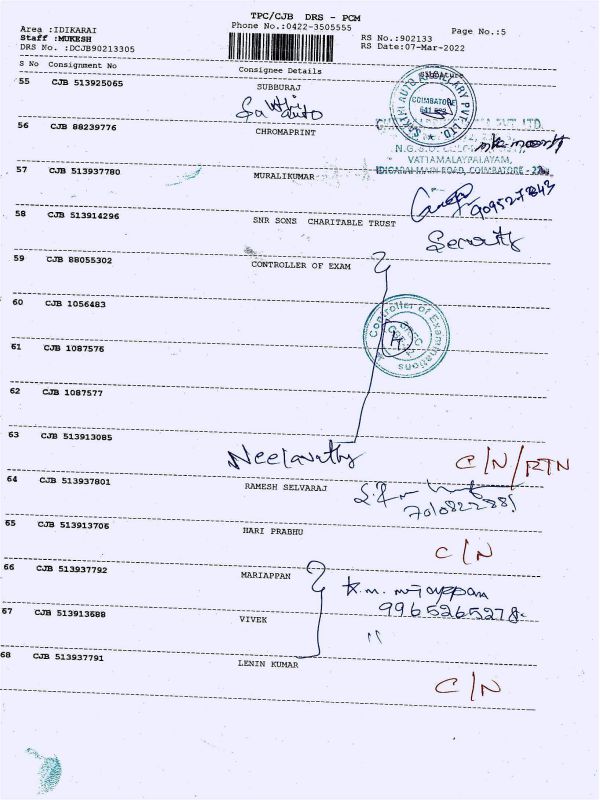 TPC/CJB DRS - PCM
Phone No.:0422-3505555
Area :IDIKARAI
Staff :MUKESH
DRS No. :DCJB90213305
RS No.:902133
RS Date:07-Mar-2022
Page No.:5
S No Consignment No Consignee Details Signature
55 CJB 513925065 SUBBURAJ
Sakthi auto
SAKTHI AUTO ANCILLARY PVT. LTD.
COIMBATORE
56 CJB 88239776 CHROMAPRINT
VATTAMALAYPALAYAM,
IDIGARAI MAIN ROAD, COIMBATORE - 22
57 CJB 513937780 MURALIKUMAR
58 CJB 513914296 SNR SONS CHARITABLE TRUST
Security
59 CJB 88055302 CONTROLLER OF EXAM
Controller of Examinations
60 CJB 1056483
61 CJB 1087576
62 CJB 1087577
63 CJB 513913085
Neelavathy
C/N/RTN
64 CJB 513937801 RAMESH SELVARAJ
65 CJB 513913706 HARI PRABHU
C/N
66 CJB 513937792 MARIAPPAN
9965265278
67 CJB 513913688 VIVEK
68 CJB 513937791 LENIN KUMAR
C/N